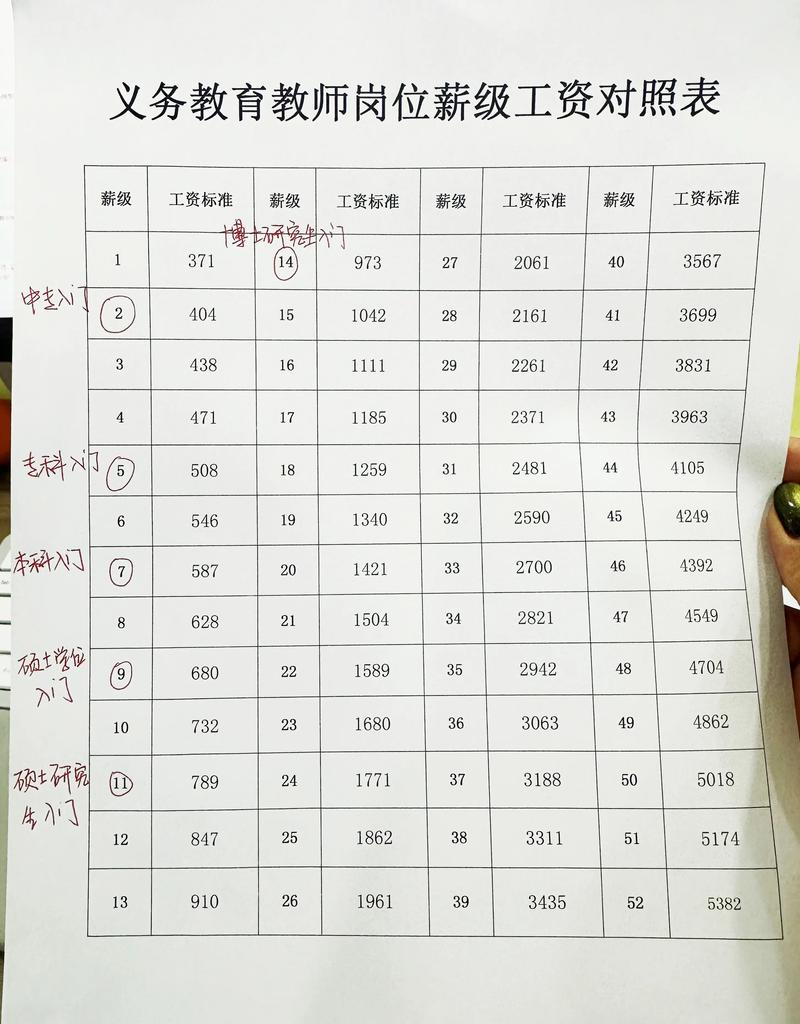 义务教育教师岗位薪级工资对照表
薪级 工资标准 薪级 工资标准 薪级 工资标准 薪级 工资标准
博士研究生入门
1 371 14 973 27 2061 40 3567
中专入门
2 404 15 1042 28 2161 41 3699
3 438 16 1111 29 2261 42 3831
4 471 17 1185 30 2371 43 3963
专科入门
5 508 18 1259 31 2481 44 4105
6 546 19 1340 32 2590 45 4249
本科入门
7 587 20 1421 33 2700 46 4392
8 628 21 1504 34 2821 47 4549
硕士学位
入门
9 680 22 1589 35 2942 48 4704
10 732 23 1680 36 3063 49 4862
硕士研究
生入门
11 789 24 1771 37 3188 50 5018
12 847 25 1862 38 3311 51 5174
13 910 26 1961 39 3435 52 5382